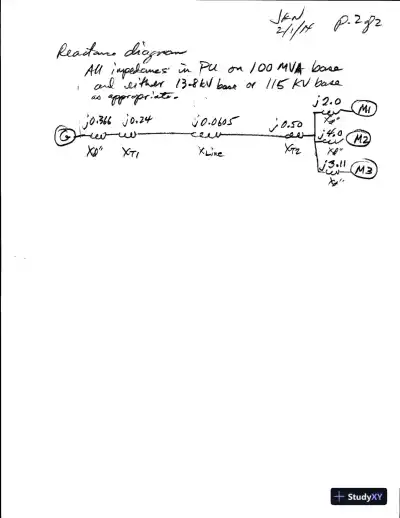 JKN
2/1/14
p. 2 of 2
Reactance diagram
All impedances in PU on 100 MVA base
and either 13.8 kV base or 115 KV base
as appropriate.
j2.0 M1
j0.366 j0.24 j0.0605 j0.50 Xd" j4.0 M2
G
Xd" XT1 XLine XT2 Xd" j3.11 M3
Xd"
StudyXY